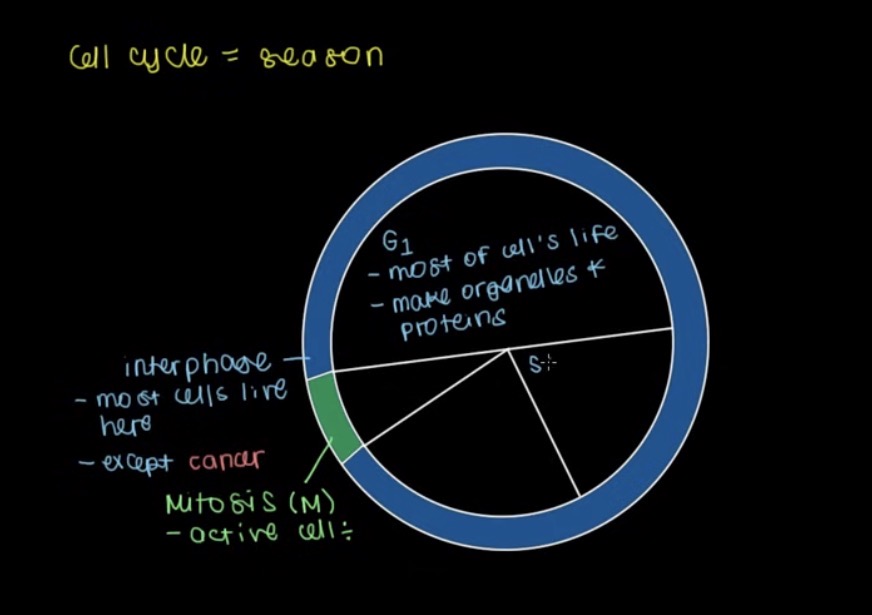 cell cycle = season
G1
- most of cell's life
- make organelles &
proteins
S
interphase
- most cells live
here
- except cancer
Mitosis (M)
- active cell ÷